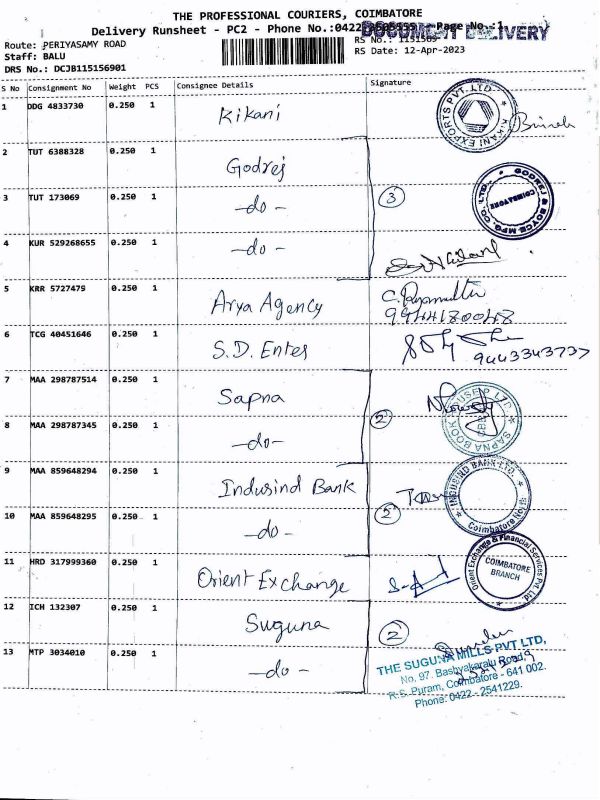 THE PROFESSIONAL COURIERS, COIMBATORE
Delivery Runsheet - PC2 - Phone No.:0422 Page No.:1
DOCUMENT DELIVERY
Route: PERIYASAMY ROAD
RS No.: 1151569
Staff: BALU
RS Date: 12-Apr-2023
DRS No.: DCJB115156901
S No Consignment No Weight PCS Consignee Details Signature
1 DDG 4833730 0.250 1 Kikani
KIKANI EXPORTS PVT. LTD.
2 TUT 6388328 0.250 1 Godrej
3 TUT 173069 0.250 1 -do- 3
GODREJ & BOYCE MFG. CO. LTD.
COIMBATORE
4 KUR 529268655 0.250 1 -do-
5 KRR 5727479 0.250 1 Arya Agency
9944180048
6 TCG 40451646 0.250 1 S.D. Entes
9443343737
7 MAA 298787514 0.250 1 Sapna
8 MAA 298787345 0.250 1 -do- 2
SAPNA BOOK HOUSE P LTD.
9 MAA 859648294 0.250 1 Indusind Bank
10 MAA 859648295 0.250 1 -do- 2
INDUSIND BANK LTD.
Coimbatore
11 HRD 317999360 0.250 1 Orient Exchange
Orient Exchange & Financial Services Pvt. Ltd.
COIMBATORE
BRANCH
12 ICH 132307 0.250 1 Suguna
13 MTP 3034010 0.250 1 -do- 2
THE SUGUNA MILLS PVT LTD,
No. 97. Bashyakaralu Road,
R.S. Puram, Coimbatore - 641 002.
Phone: 0422 - 2541229.